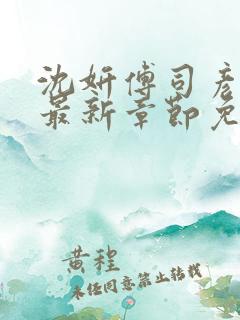 沈妍傅司彦
最新章节免
黄程
未经同意禁止转载